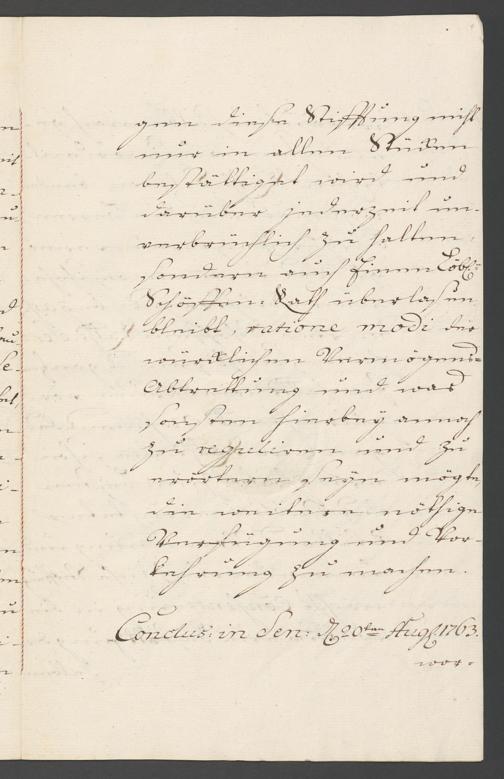 gen diese Stifftung nicht
nur in allen Stücken
bestättiget wird und
darüber jederzeit un-
verbrüchlich zu halten,
sondern auch Einem Löbl:
Schöffen-Rath überlasen
bleibt, ratione modi der
würcklichen Vermögens-
Abtrettung und was
sonsten hierbey annoch
zu reguliren und zu
erörtern seyn mögte,
die weitere nöthige
Verfügung und Vor-
kehrung zu machen.
Conclus: in Sen: d. 20ten Aug. 1763.
wor-